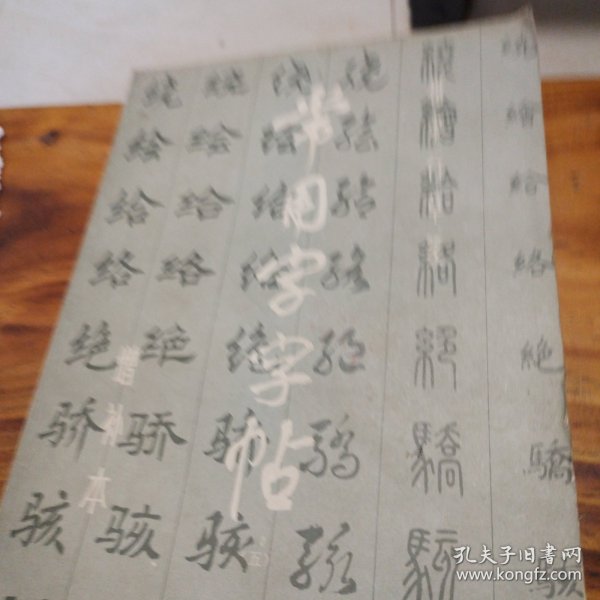 常用字字帖
增补本
绕 绕 绕 绕 繞 繞
绘 绘 绘 绘 繪 繪
给 给 给 给 給 給
络 络 络 络 絡 絡
绝 绝 绝 绝 絕 絶
骄 骄 骄 驕 驕 驕
骇 骇 骇 骇 駭 駭
孔夫子旧书网
www.kongfz.com